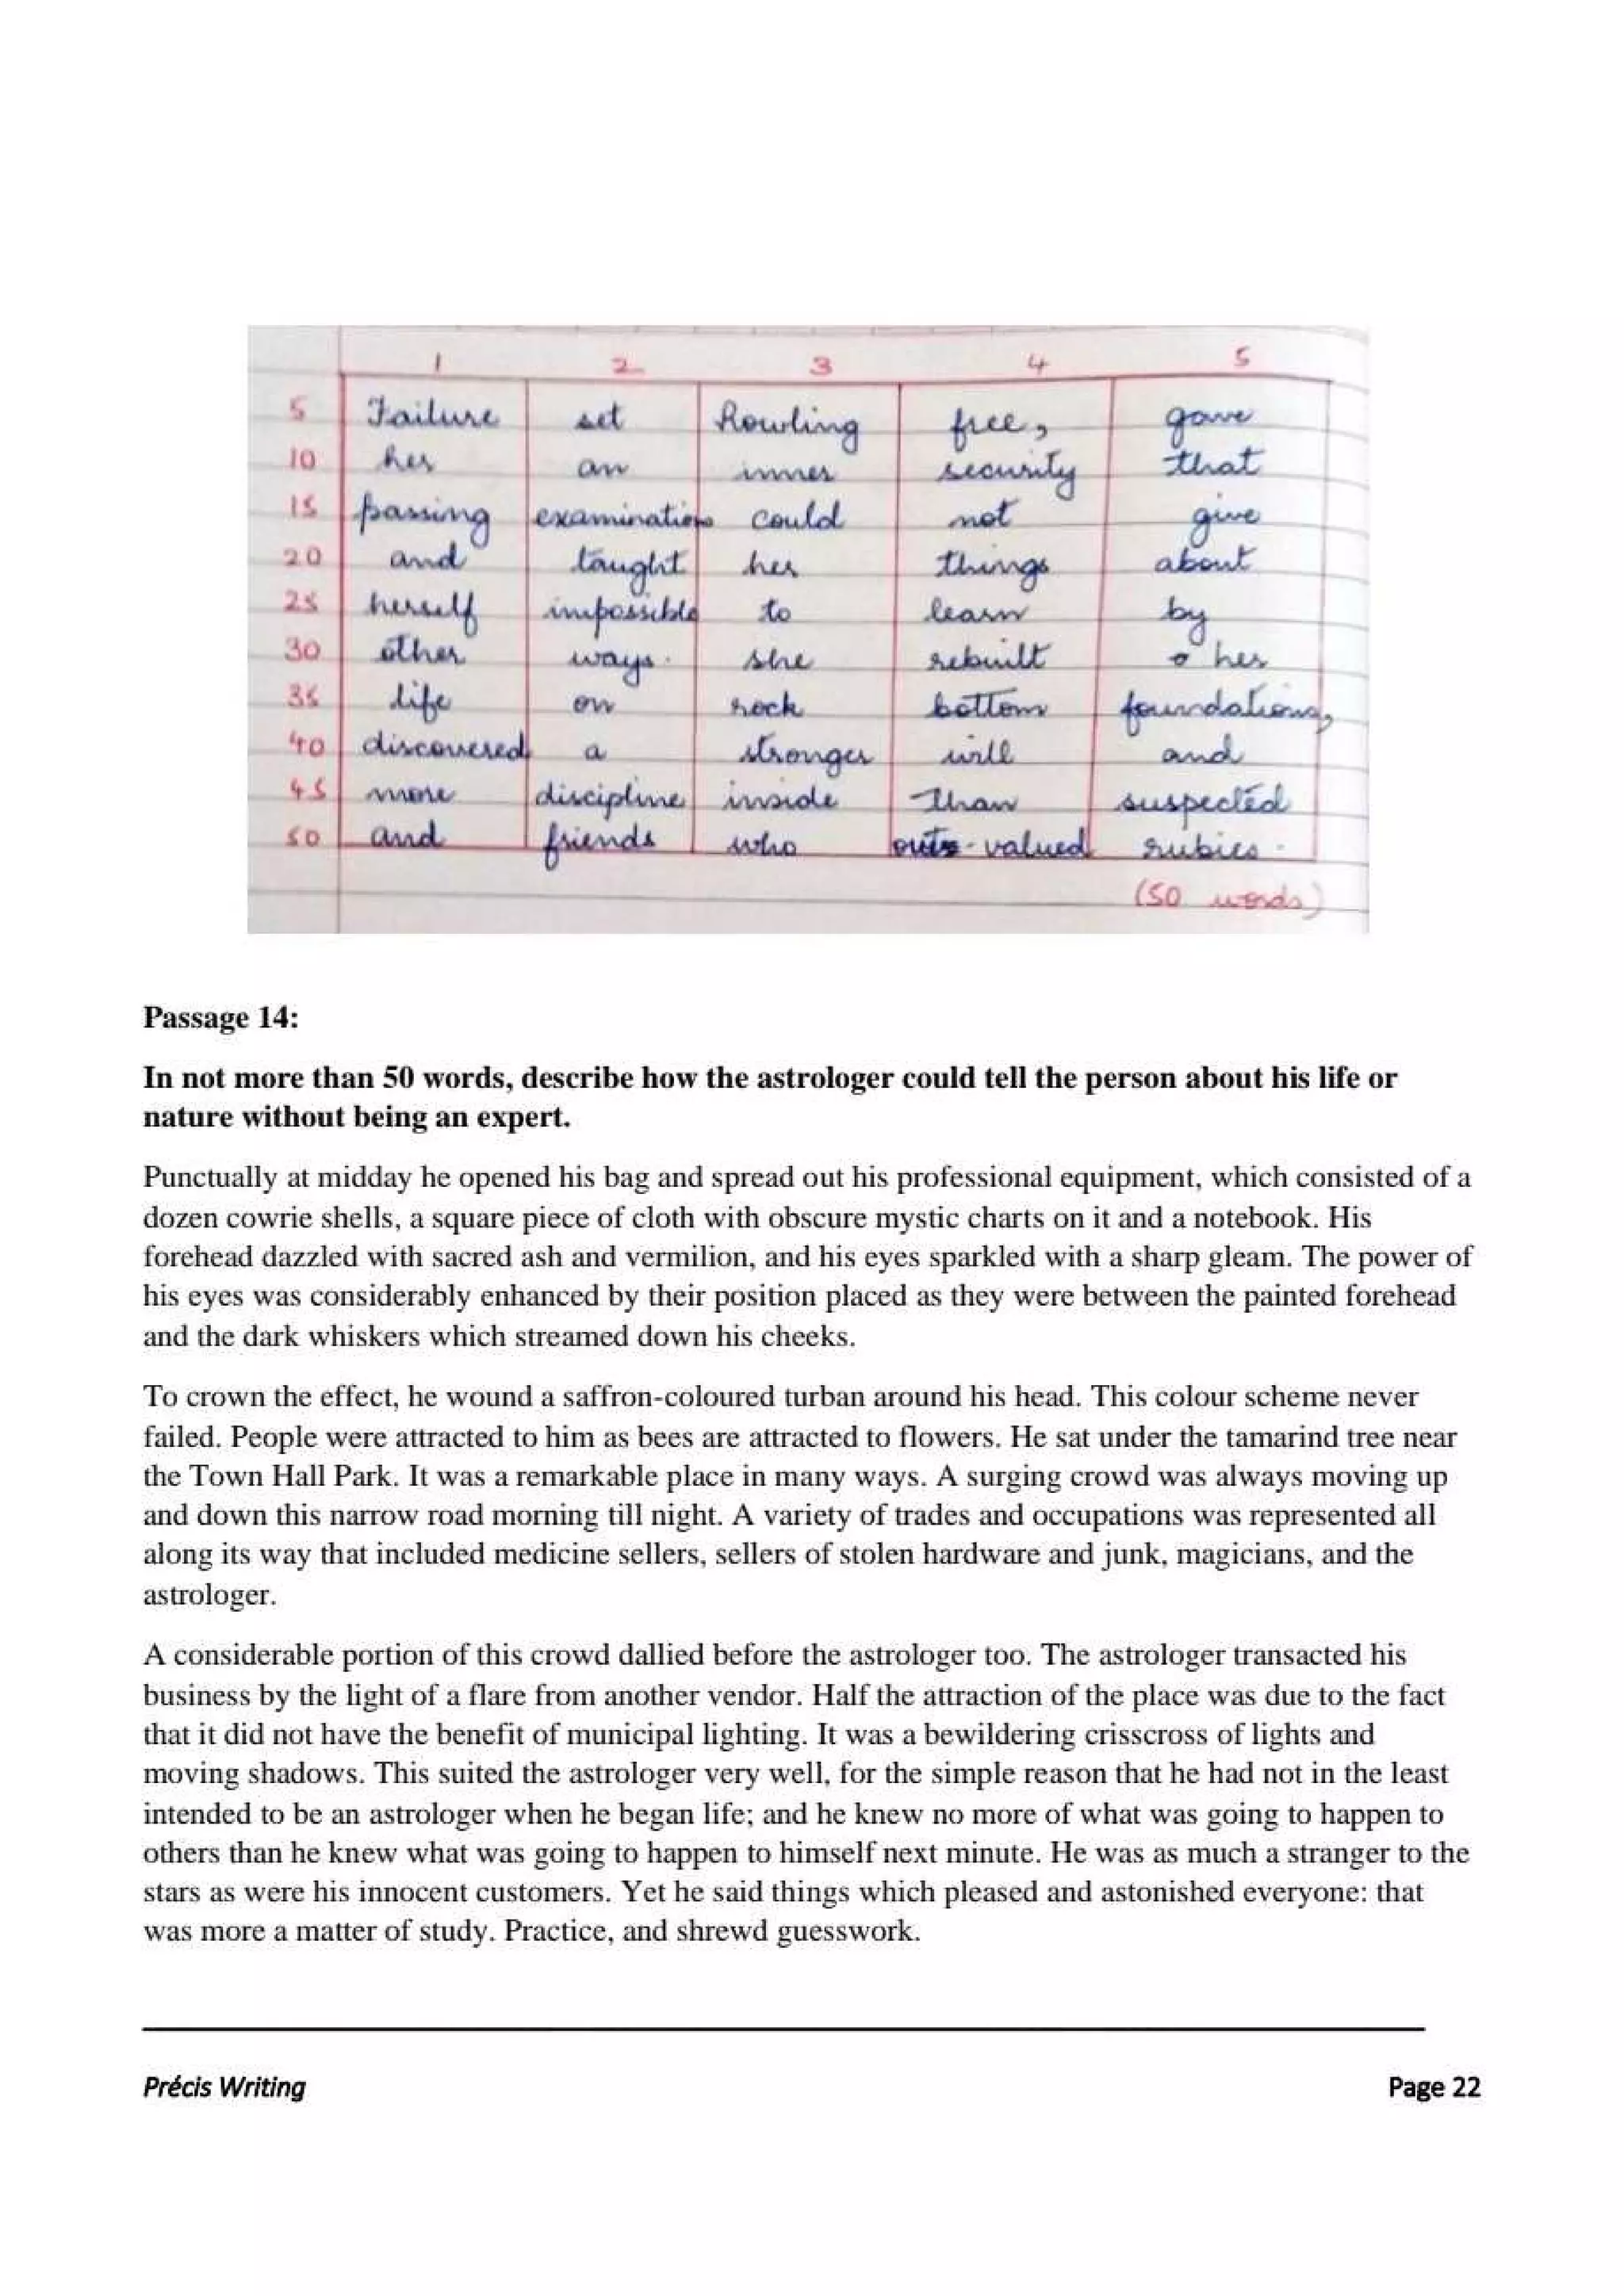 1 2 3 4 5
5 Failure set Rowling free, gave
10 her an inner security that
15 passing examinations could not give
20 and taught her things about
25 herself impossible to learn by
30 other ways. she rebuilt her
35 life on rock bottom foundations,
40 discovered a stronger will and
45 more discipline inside than suspected
50 and friends who out-valued rubies.
(50 words)
Passage 14:
In not more than 50 words, describe how the astrologer could tell the person about his life or
nature without being an expert.
Punctually at midday he opened his bag and spread out his professional equipment, which consisted of a
dozen cowrie shells, a square piece of cloth with obscure mystic charts on it and a notebook. His
forehead dazzled with sacred ash and vermilion, and his eyes sparkled with a sharp gleam. The power of
his eyes was considerably enhanced by their position placed as they were between the painted forehead
and the dark whiskers which streamed down his cheeks.
To crown the effect, he wound a saffron-coloured turban around his head. This colour scheme never
failed. People were attracted to him as bees are attracted to flowers. He sat under the tamarind tree near
the Town Hall Park. It was a remarkable place in many ways. A surging crowd was always moving up
and down this narrow road morning till night. A variety of trades and occupations was represented all
along its way that included medicine sellers, sellers of stolen hardware and junk, magicians, and the
astrologer.
A considerable portion of this crowd dallied before the astrologer too. The astrologer transacted his
business by the light of a flare from another vendor. Half the attraction of the place was due to the fact
that it did not have the benefit of municipal lighting. It was a bewildering crisscross of lights and
moving shadows. This suited the astrologer very well, for the simple reason that he had not in the least
intended to be an astrologer when he began life; and he knew no more of what was going to happen to
others than he knew what was going to happen to himself next minute. He was as much a stranger to the
stars as were his innocent customers. Yet he said things which pleased and astonished everyone: that
was more a matter of study. Practice, and shrewd guesswork.
Précis Writing Page 22